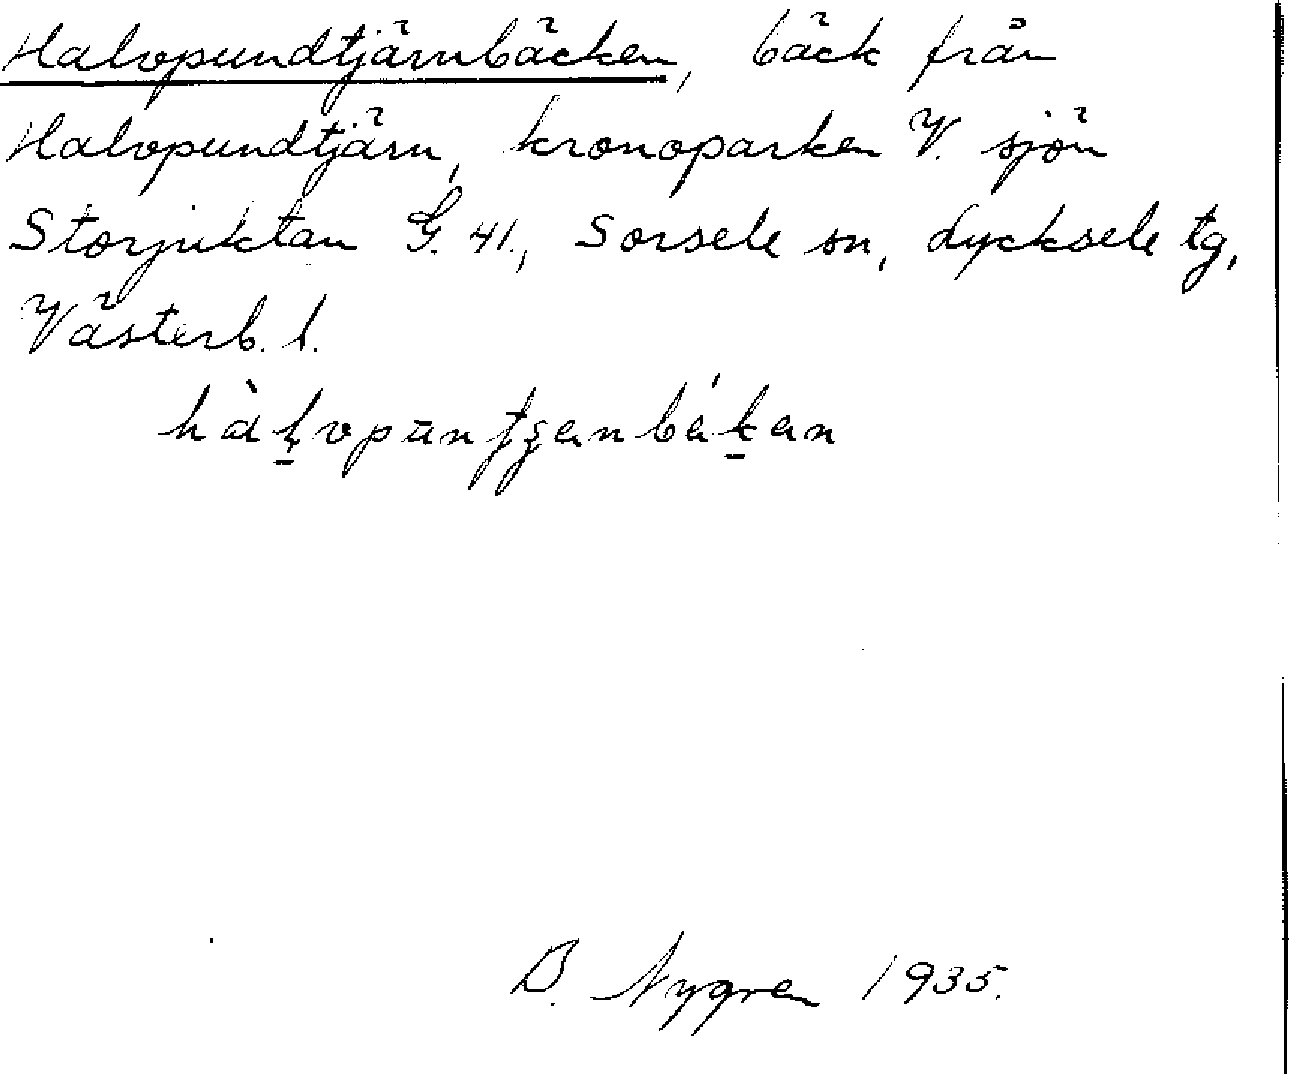 Halvpundtjärnbäcken, bäck från
Halvpundtjärn, kronoparken V. sjön
Storjuktan G. 41., Sorsele sn, Lycksele tg,
Västerb. l.
B. Nygren 1935.